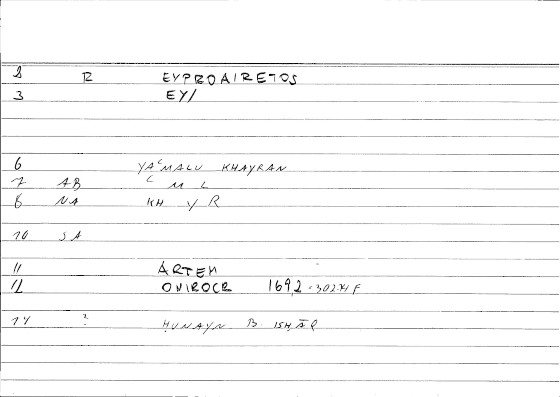 2 R EYPROAIRETOS
3 EY/
6 YAʿMALU KHAYRAN
7 AB ʿ M L
8 NA KH Y R
10 SA
11 ARTEM
12 ONIROCR 1692
14 ? ḤUNAYN B ISḤĀQ